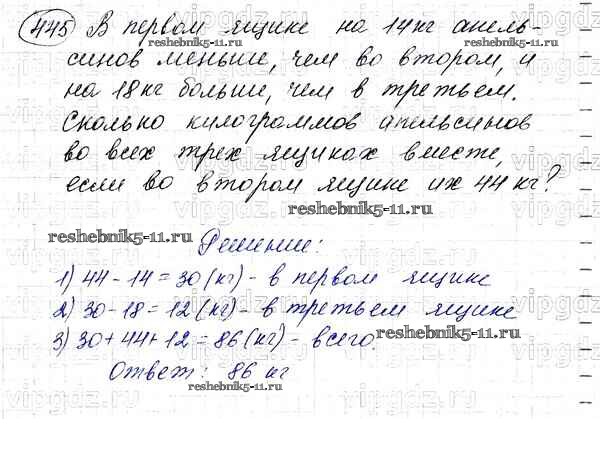 445 В первом ящике на 14 кг апель-
reshebnik5-11.ru
синов меньше, чем во втором, и
на 18 кг больше, чем в третьем.
Сколько килограммов апельсинов
во всех трех ящиках вместе,
если во втором ящике их 44 кг?
reshebnik5-11.ru
reshebnik5-11.ru
Решение:
1) 44 - 14 = 30 (кг) - в первом ящике
2) 30 - 18 = 12 (кг) - в третьем ящике
3) 30 + 44 + 12 = 86 (кг) - всего.
reshebnik5-11.ru
Ответ: 86 кг
reshebnik5-11.ru